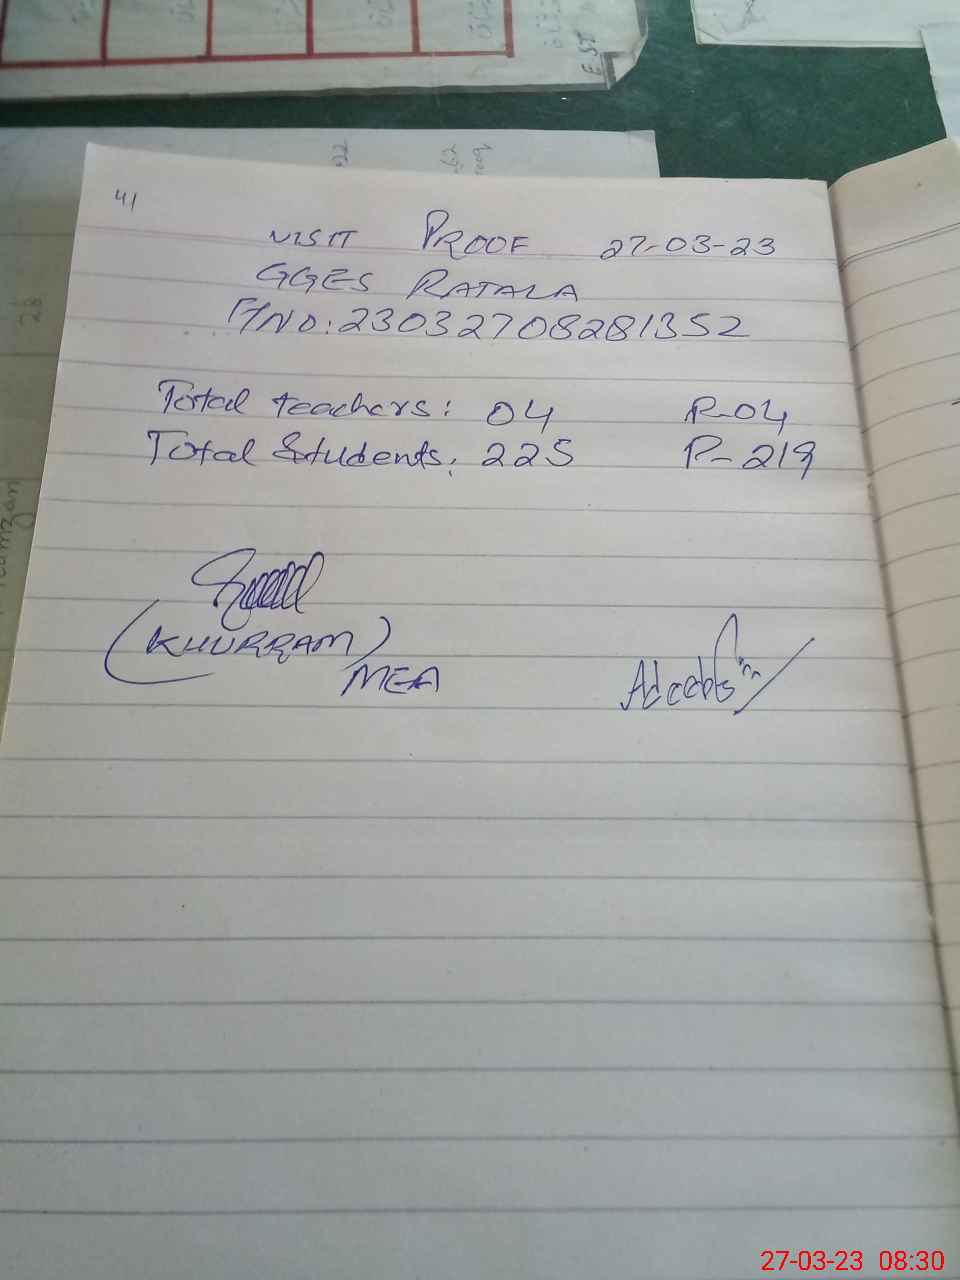 41
VISIT PROOF 27-03-23
GGES RATALA
F/NO:23032708281352
Total teachers: 04 P-04
Total Students: 225 P-219
(KHURRAM)
MEA
27-03-23 08:30